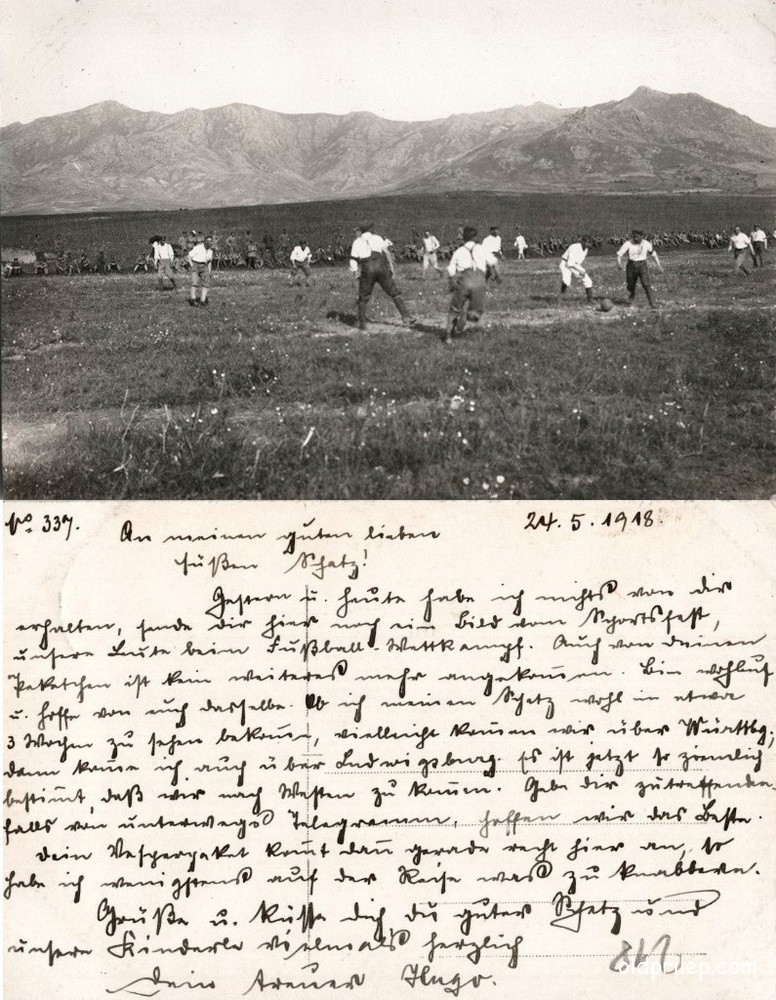 No. 337.
24.5.1918.
An meinen guten lieben
süßen Schatz!
Gestern u. heute habe ich nichts von dir
erhalten, sende dir hier noch ein Bild vom Sportsfest,
unsere Leute beim Fußball-Wettkampf. Auch von deinen
Paketchen ist kein weiteres mehr angekommen. Bin wohlauf
u. hoffe von euch dasselbe. Ob ich meinen Schatz wohl in etwa
3 Wochen zu sehen bekomme, vielleicht kommen wir über Württbg;
dann komme ich auch über Ludwigsburg. Es ist jetzt so ziemlich
bestimmt, daß wir nach Westen zu kommen. Gebe dir zutreffenden-
falls von unterwegs Telegramm, hoffen wir das Beste.
Dein Vesperpaket kommt dann gerade recht hier an, so
habe ich wenigstens auf der Reise was zu knabbern.
Grüße u. küsse dich du guter Schatz und
unsere Kinderle vielmals herzlich
Dein treuer Hugo.
oldprilep.com